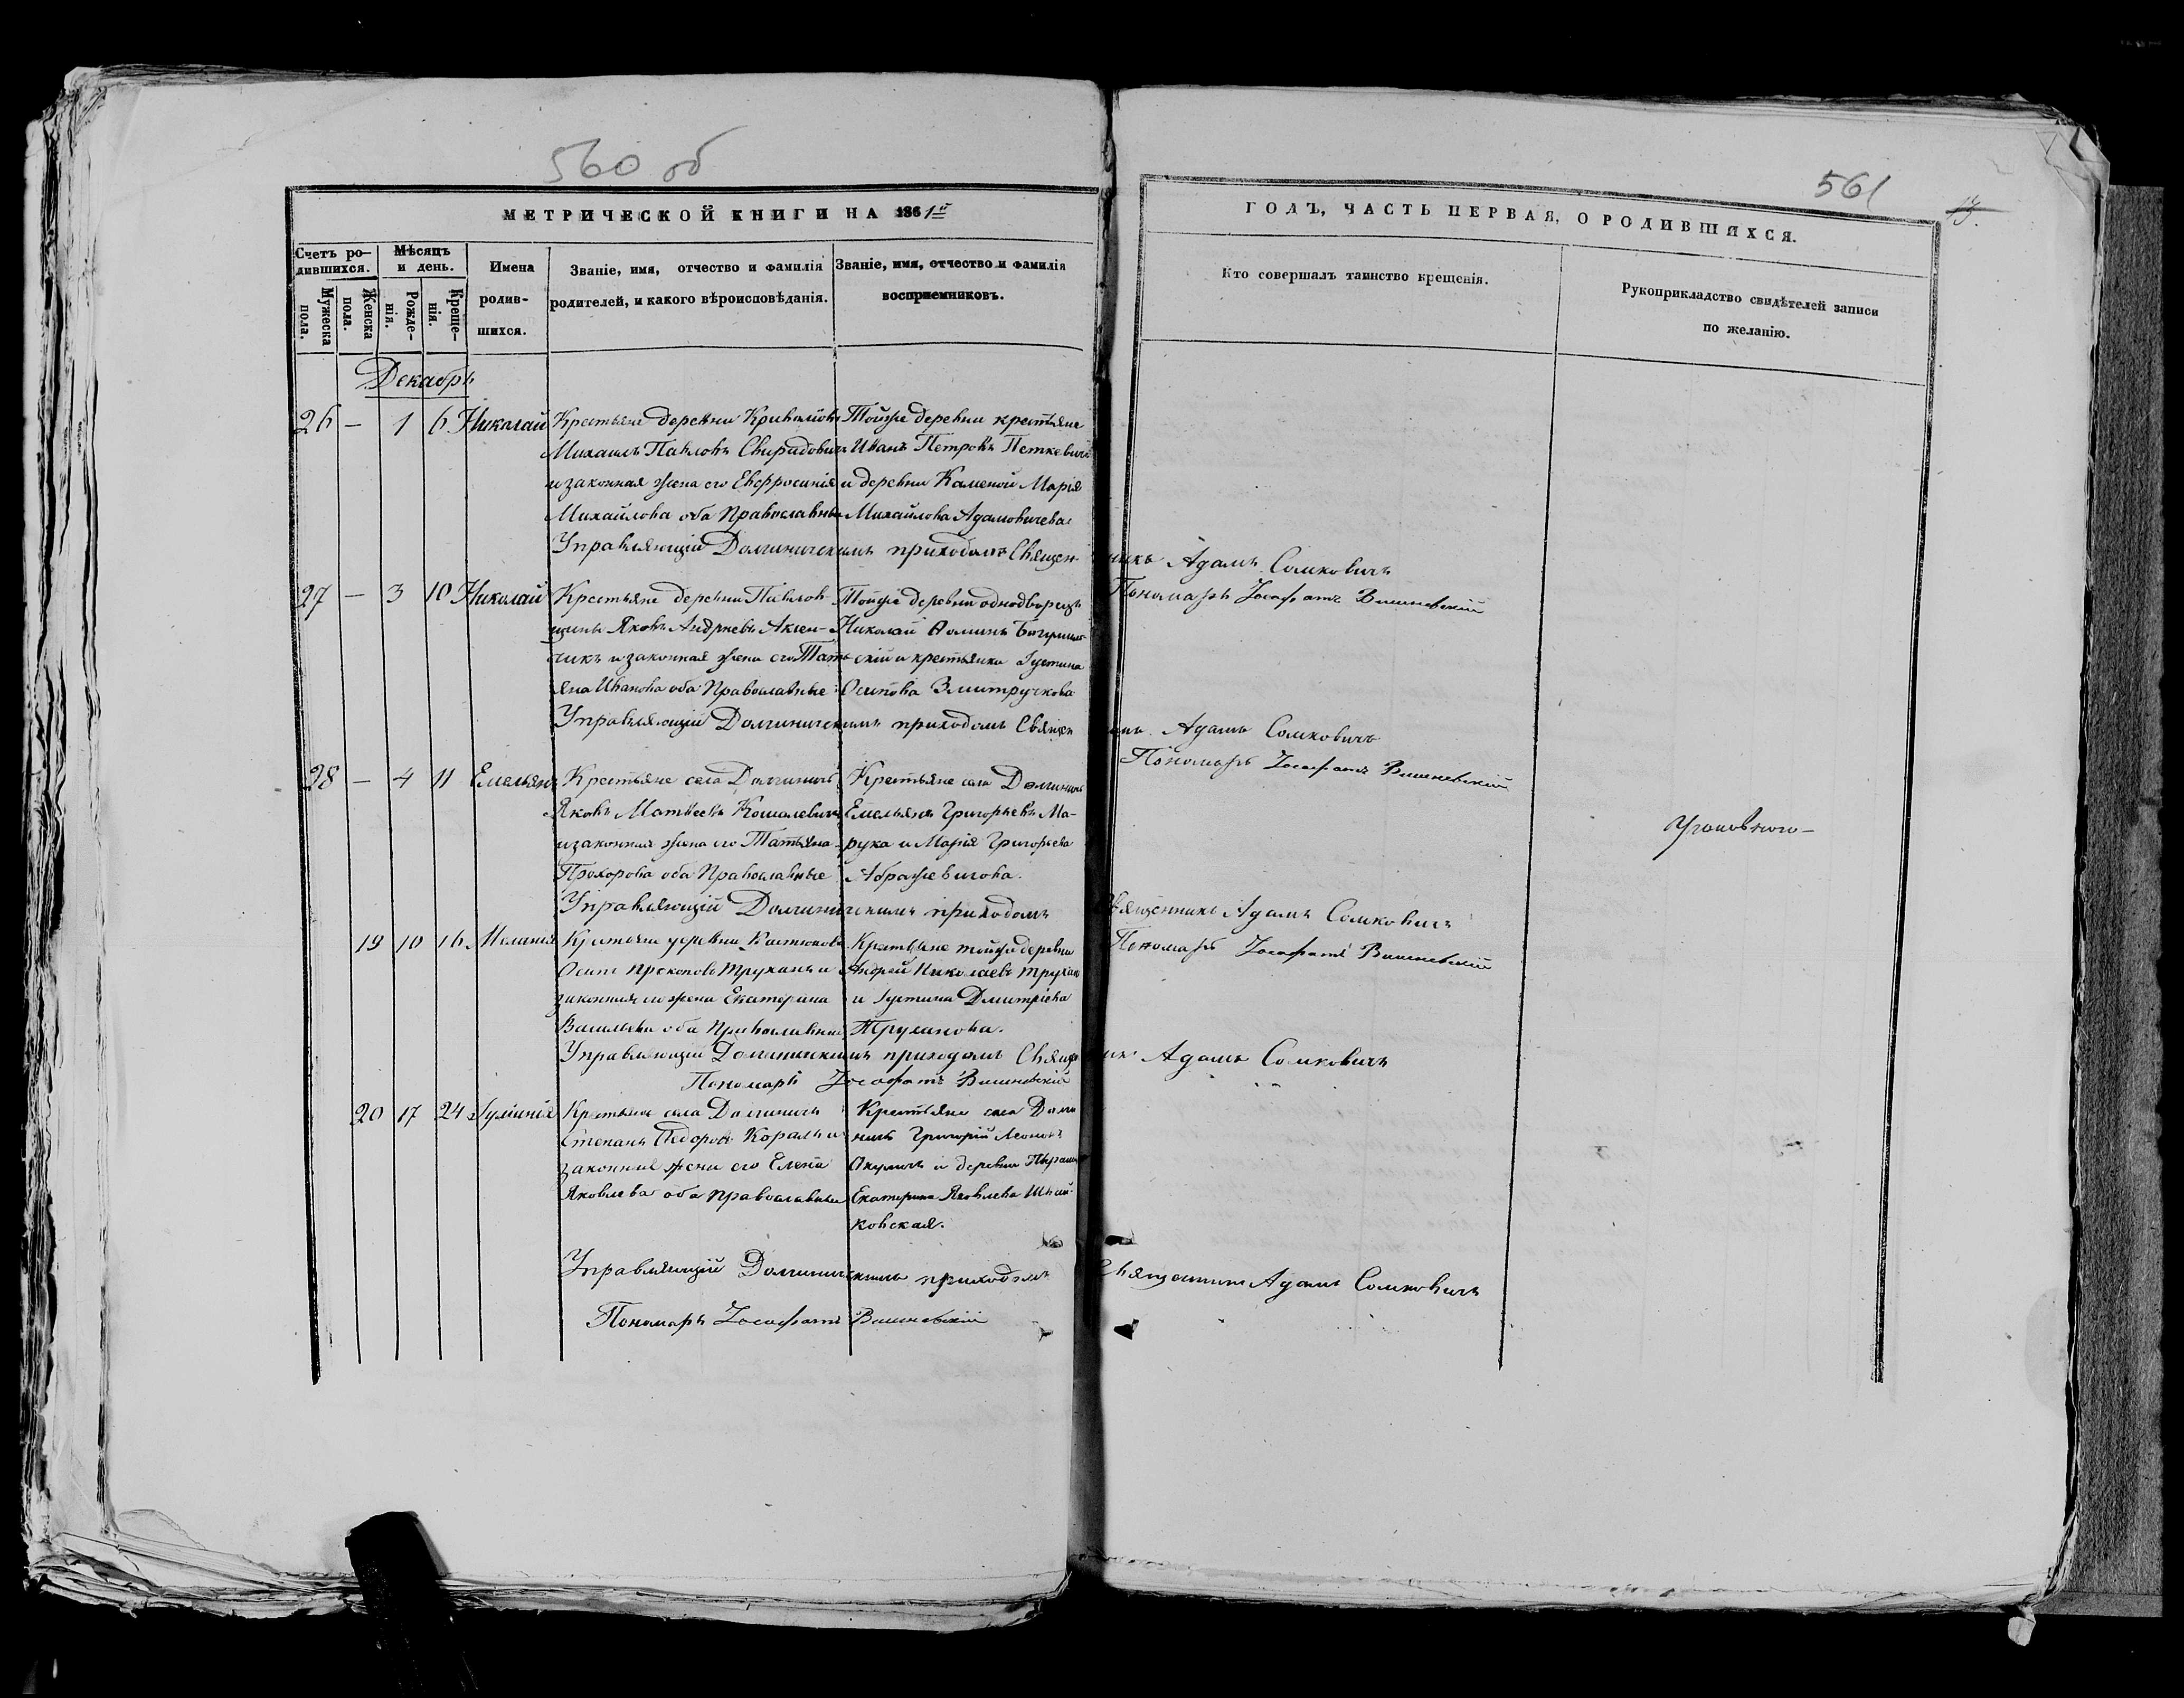 560 об
МЕТРИЧЕСКОЙ КНИГИ НА 1861й
Счетъ ро-
дившихся.
Мужеска
пола.
Женска
пола.
Мѣсяцъ
и день.
Рожде-
нія.
Креще-
нія.
Имена
родив-
шихся.
Званіе, имя, отчество и фамилія
родителей, и какого вѣроисповѣданія.
Званіе, имя, отчество и фамилія
восприемниковъ.
561
13.
ГОДЪ, ЧАСТЬ ПЕРВАЯ, О РОДИВШИХСЯ.
Кто совершалъ таинство крещенія.
Рукоприкладство свидѣтелей записи
по желанію.
Декабрь
26 — 1 6 Николай
Крестьяне деревни
Михаилъ Павловъ Свиридовичъ
и законная жена его Евфросинія
Михайлова оба Православные
Тойже деревни крестьяне
Иванъ Петровъ Петкевичъ
и деревни Каменой Марія
Михайлова Адамовичева
Управляющій Долгиническимъ приходомъ Священникъ Адамъ Сомковичъ
Пономарь Іосафатъ Вишневскій
27 — 3 10 Николай
Крестьяне деревни Павлов-
щины Яковъ Андреевъ Аксен-
чикъ и законная жена его Тать-
яна Иванова оба Православные
Тойже деревни однодворецъ
Николай Ѳоминъ
скій и крестьянка Іустина
Осипова Змитручкова
Управляющій Долгиническимъ приходомъ Священникъ Адамъ Сомковичъ
Пономарь Іосафатъ Вишневскій
28 — 4 11 Емельянъ
Крестьяне села Долгиничъ
Яковъ Матвеевъ Кошалевичъ
и законная жена его Татьяна
Прохорова оба Православные
Крестьяне села Долгиничъ
Емельянъ Григорьевъ Ма-
рука и Марія Григорьева
Абражевичова.
Управляющій Долгиническимъ приходомъ Священникъ Адамъ Сомковичъ
Пономарь Іосафатъ Вишневскій
19 10 16 Меланія
Крестьяне деревни Костюкова
Осипъ Прокоповъ Труханъ и
законная его жена Екатерина
Васильева оба Православные
Крестьяне тойже деревни
Андрей Николаевъ Труханъ
и Іустина Дмитріева
Труханова.
Управляющій Долгиническимъ приходомъ Священникъ Адамъ Сомковичъ
Пономарь Іосафатъ Вишневскій
20 17 24 Іуліанія
Крестьяне села Долгиничъ
Степанъ Ѳедоровъ Король и
законная жена его Елена
Яковлева оба Православные
Крестьяне села Долги-
ничъ Григорій Леоновъ
Окуличъ и деревни
Екатерина Яковлева
ковская.
Управляющій Долгиническимъ приходомъ Священникъ Адамъ Сомковичъ
Пономарь Іосафатъ Вишневскій